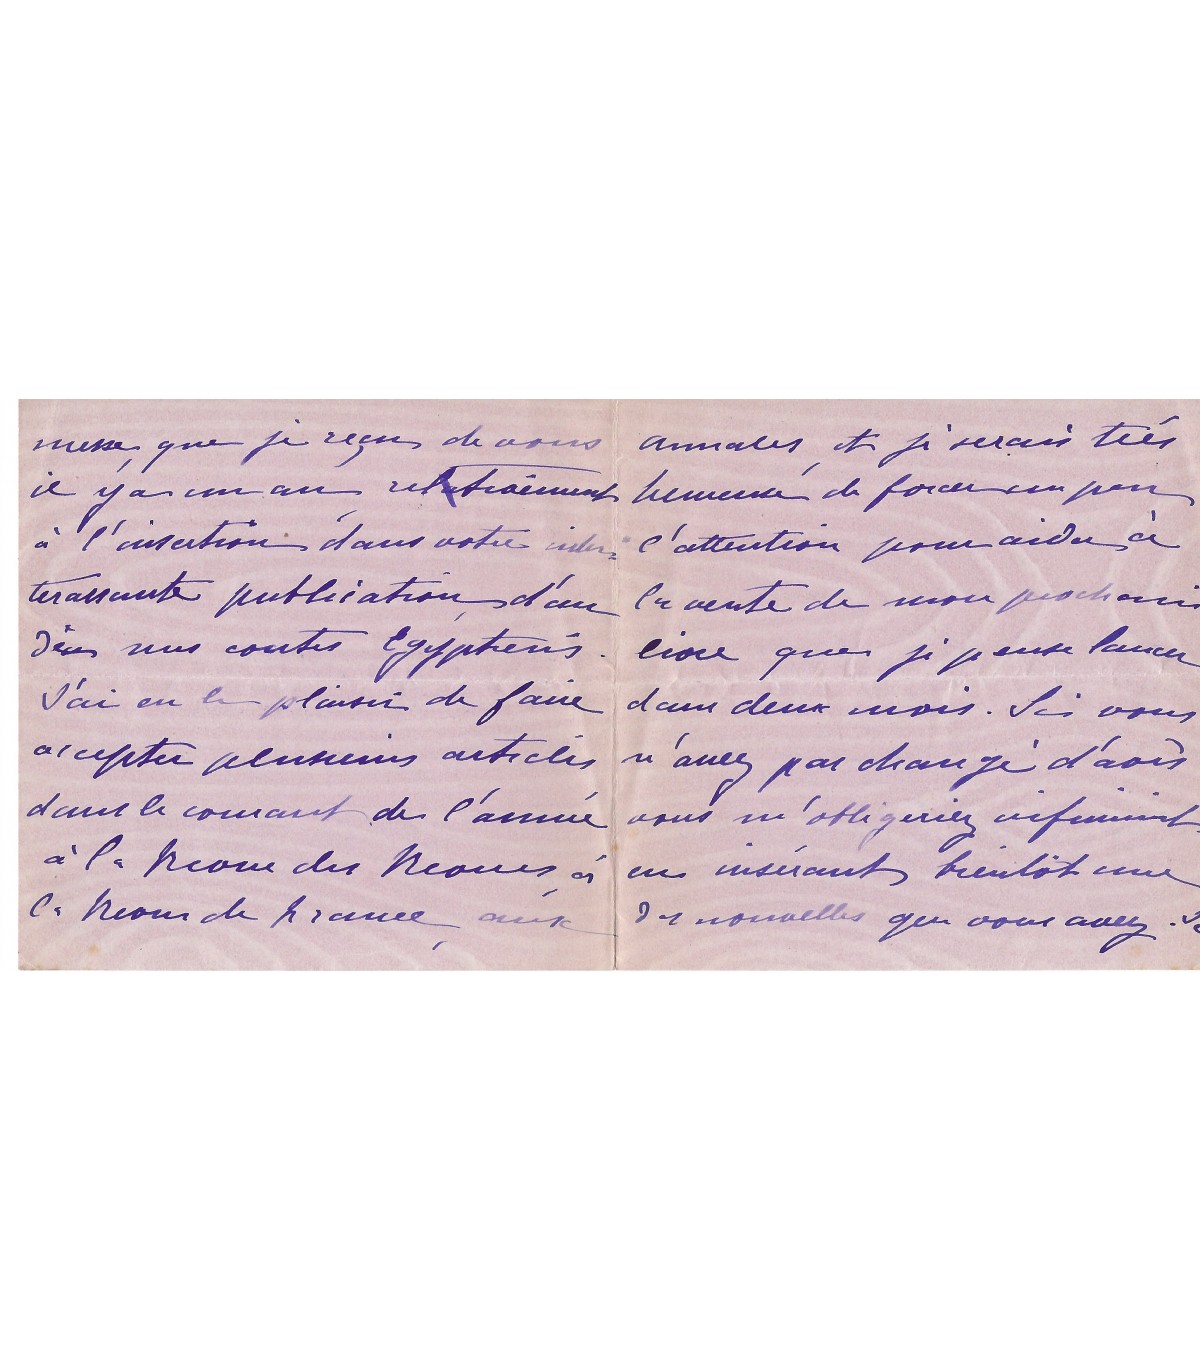 messe que je reçus de vous
il y a un an, relativement
à l'insertion dans votre inté-
ressante publication, d'un
de mes contes Egyptiens.
J'ai eu le plaisir de faire
accepter plusieurs articles
dans le courant de l'année
à la Revue des Revues, à
la Revue de France, aux
Annales et je serais très
heureuse de forcer un peu
l'attention pour aider à
la vente de mon prochain
livre que je pense lancer
dans deux mois. Si vous
n'avez pas changé d'avis
vous m'obligeriez infiniment
en insérant bientôt une
des nouvelles que vous avez. Je